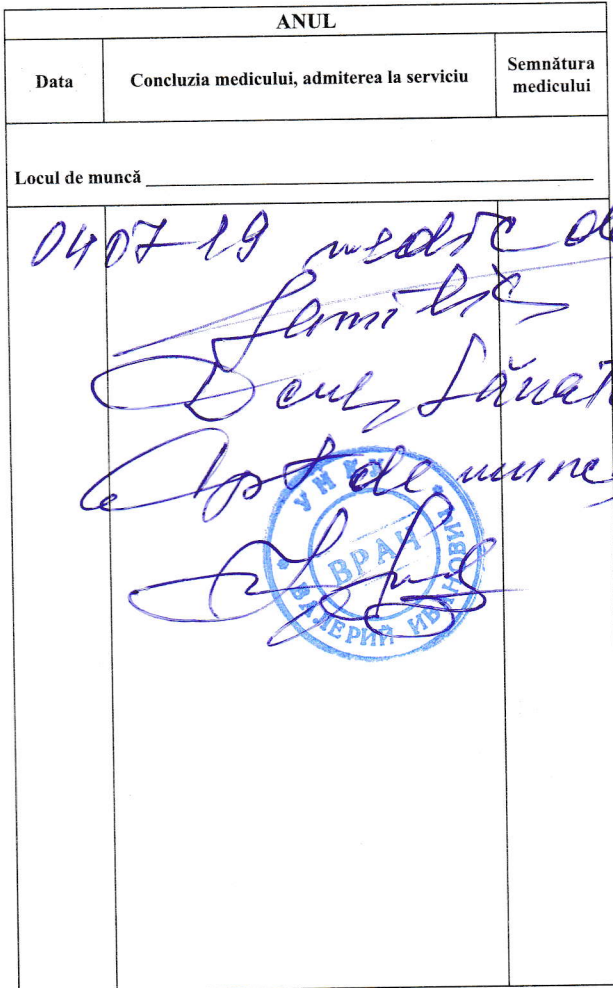 ANUL
Data
Concluzia medicului, admiterea la serviciu
Semnătura medicului
Locul de muncă
04 07 19 medic de
familie
sănăt
Apt de munc
ВРАЧ
ВАЛЕРИЙ ИВАНОВИЧ